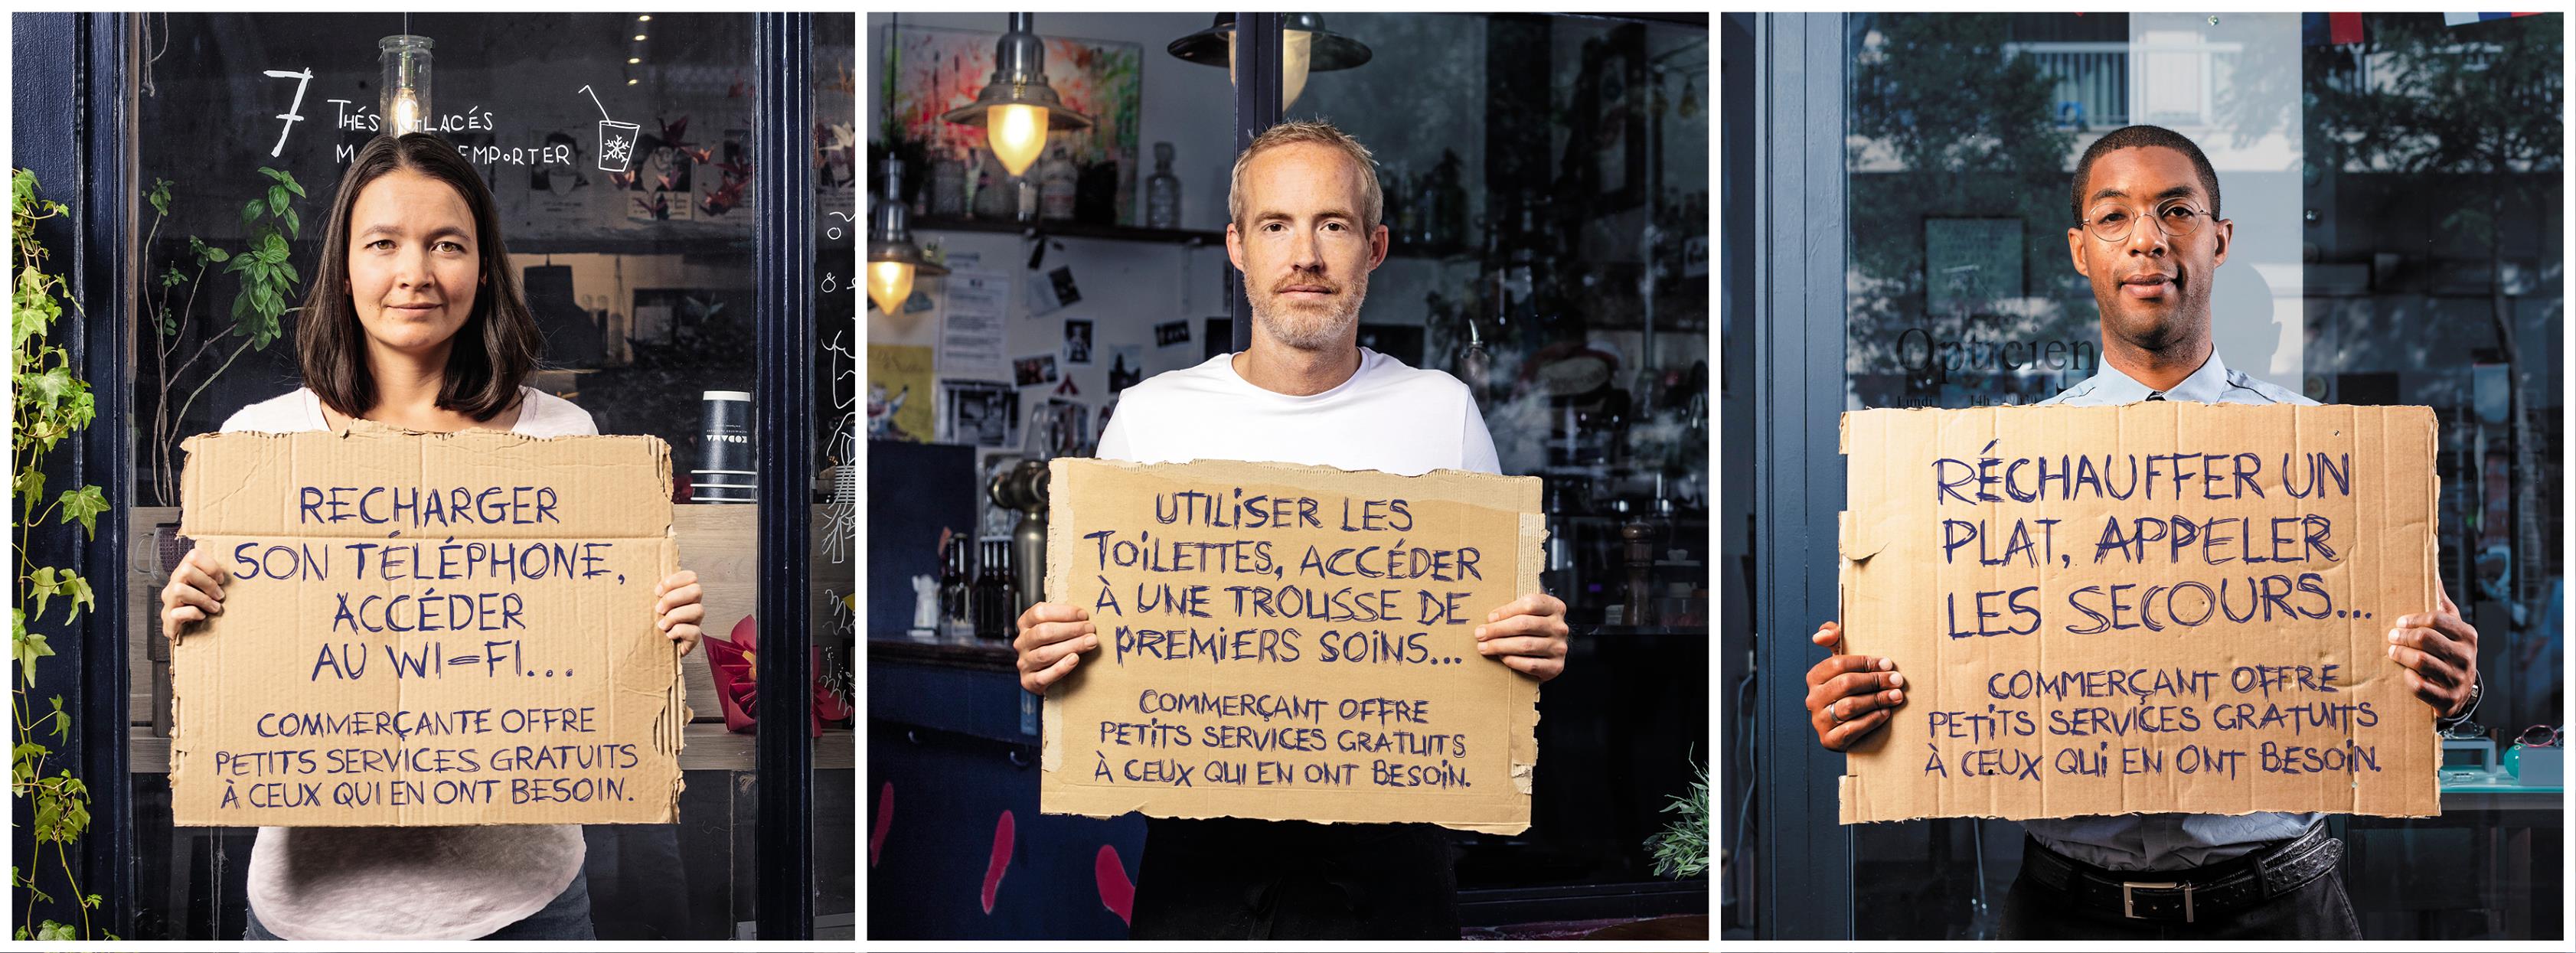 7
THÉS GLACÉS
EMPORTER
RECHARGER
SON TÉLÉPHONE,
ACCÉDER
AU WI-FI...
COMMERÇANTE OFFRE
PETITS SERVICES GRATUITS
À CEUX QUI EN ONT BESOIN.
KODAMA
UTILISER LES
TOILETTES, ACCÉDER
À UNE TROUSSE DE
PREMIERS SOINS...
COMMERÇANT OFFRE
PETITS SERVICES GRATUITS
À CEUX QUI EN ONT BESOIN.
Opticien
Lundi 14h
RÉCHAUFFER UN
PLAT, APPELER
LES SECOURS...
COMMERÇANT OFFRE
PETITS SERVICES GRATUITS
À CEUX QUI EN ONT BESOIN.